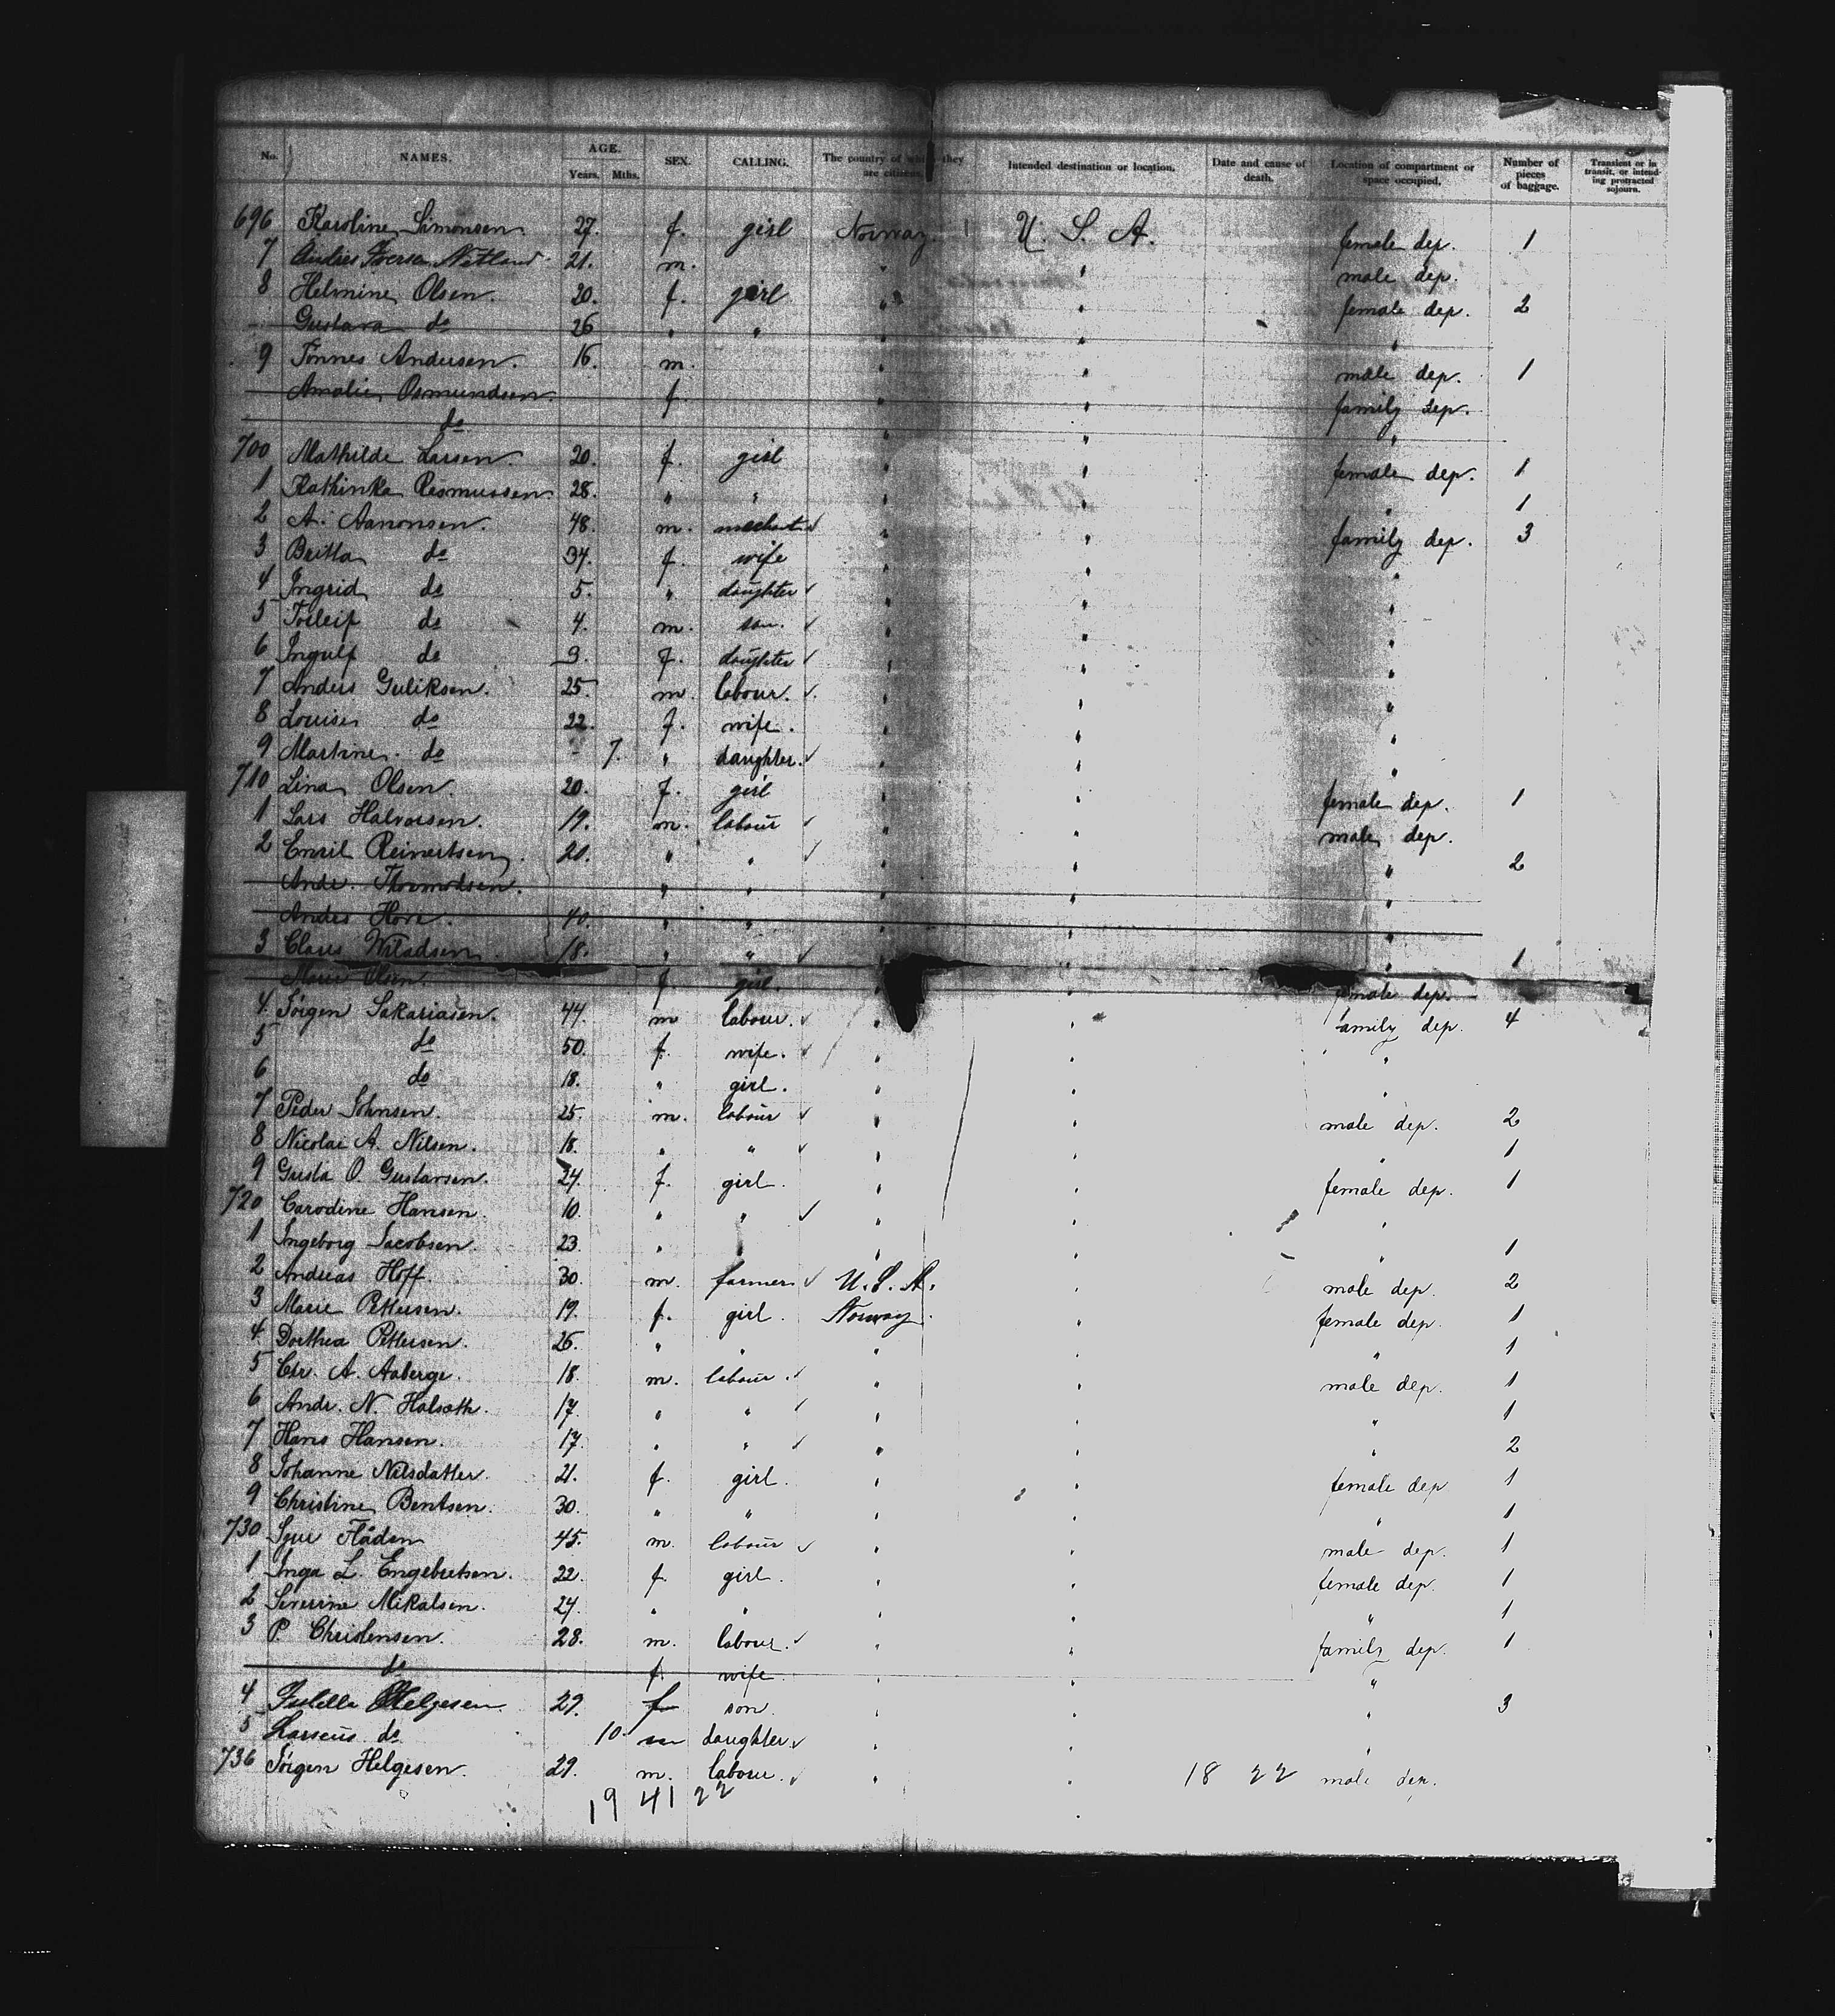 No. NAMES. AGE. Years. Mths. SEX. CALLING. The country of which they are citizens. Intended destination or location. Date and cause of death. Location of compartment or space occupied. Number of pieces of baggage. Transient or in transit, or intending protracted sojourn.
696 Karoline Simonsen. 27. f. girl Norway. U. S. A. female dep. 1
7 Andres Iversen Netland 21. m. " " male dep.
8 Helmine Olsen. 20. f. girl " " female dep. 2
Gustava do 26 " " " " "
9 Tønnes Andersen. 16. m. " " male dep. 1
Amalie Osmundsen. f. " " family dep.
do " " "
700 Mathilde Larsen. 20. f. girl " " female dep. 1
1 Kathinka Rasmussen. 28. " " " " " 1
2 A. Aanonsen. 48. m. " " family dep. 3
3 Britta do 34. f. wife " " "
4 Ingrid do 5. " daughter " " "
5 Torleif do 4. m. son. " " "
6 Ingulf do 3. f. daughter " " "
7 Anders Guliksen. 25. m. labour. " " "
8 Louise do 22. f. wife. " " "
9 Martine. do - 7. " daughter. " " "
710 Lina Olsen. 20. f. girl " " female dep. 1
1 Lars Halvorsen. 19. m. labour " " male dep.
2 Emil Reinertsen. 20. " " " " " 2
Andr. Thormodsen. " " " " "
Andrs Hove. 40. " " " " "
3 Claus Wiladsen 18. " " " " " 1
Marie Olsen. f. girl. " " female dep.
4 Jørgen Sakariasen. 44. m labour. " " family dep. 4
5 do 50. f. wife. " " "
6 do 18. " girl. " " "
7 Peder Johnsen. 25. m. labour " " male dep. 2
8 Nicolai A. Nilsen. 18. " " " " " 1
9 Gusta O. Gustavsen. 24. f. girl. " " female dep. 1
720 Carodine Hansen. 10. " " " " "
1 Ingeborg Jacobsen. 23. " " " " " 1
2 Andreas Hoff 30. m. farmer U. S. A. " male dep. 2
3 Marie Pettersen. 19. f. girl. Norway. " female dep. 1
4 Dorthea Pettersen. 26. " " " " " 1
5 Chr. A. Aaberge. 18. m. labour. " " male dep. 1
6 Andr. N. Halsæth. 17. " " " " " 1
7 Hans Hansen. 17. " " " " " 2
8 Johanne Nilsdatter. 21. f. girl. " " female dep 1
9 Christine Bentsen. 30. " " " " " 1
730 Flåden 45. m. labour " " male dep. 1
1 Inga L. Engebretsen. 22. f. girl. " " female dep. 1
2 Severine Mikalsen. 24. " " " " " 1
3 P. Christensen. 28. m. labour. " " family dep. 1
do f. wife. " " "
4 Helgesen 29. f son. " " " 3
5 do 10. m daughter " " "
736 Jørgen Helgesen. 29. m. labour. " " 18 22 male dep.
19 41 22